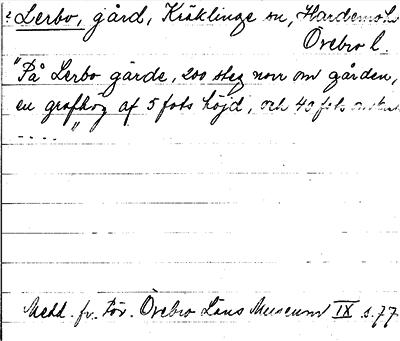 Lerbo, gård, Kräklinge sn, Hardemo h
Örebro l.
"På Lerbo gärde, 200 steg norr om gården,
en grafhög af 5 fots höjd, och 40 fots
...."
Medd. fr. För. Örebro Läns Museum IX s. 77